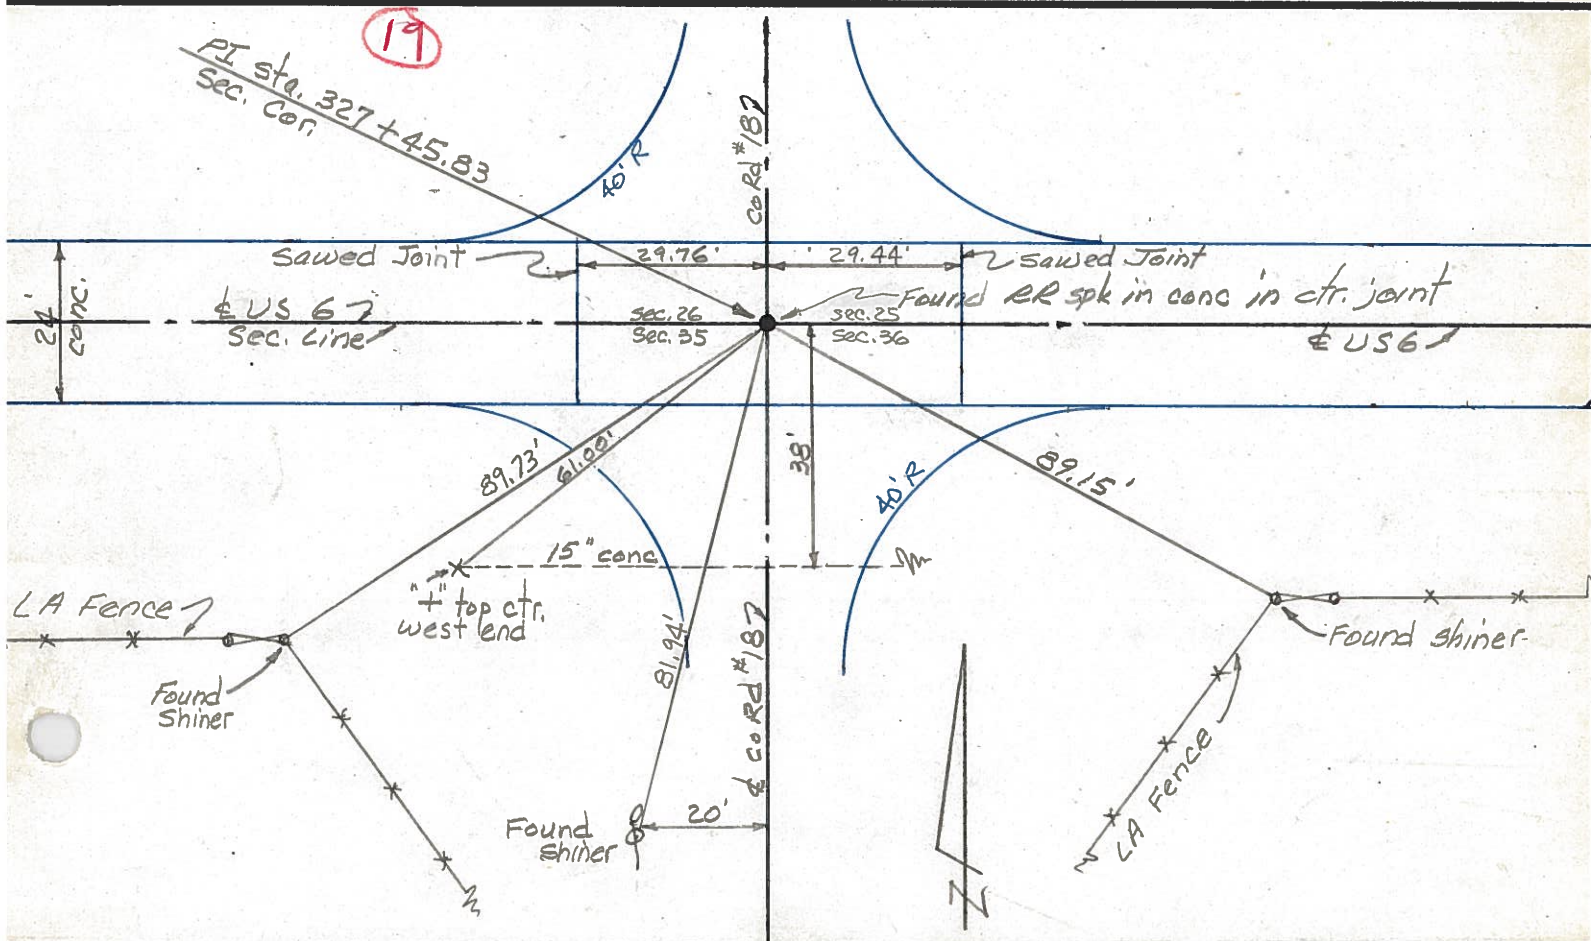 19
PI sta. 327+45.83
Sec. Cor.
40'R
Co Rd #187
Sawed Joint
29.76'
29.44'
Sawed Joint
24'
conc.
℄ US 6
Sec. Line
Sec. 26
Sec. 35
Sec. 25
Sec. 36
Found RR spk in conc in ctr. joint
℄ US 6
89.73'
61.00'
38'
40'R
89.15'
15" conc
"+" top ctr.
west end.
LA Fence
Found
Shiner
81.94'
℄ Co Rd #187
Found Shiner
LA Fence
Found
Shiner
20'
N